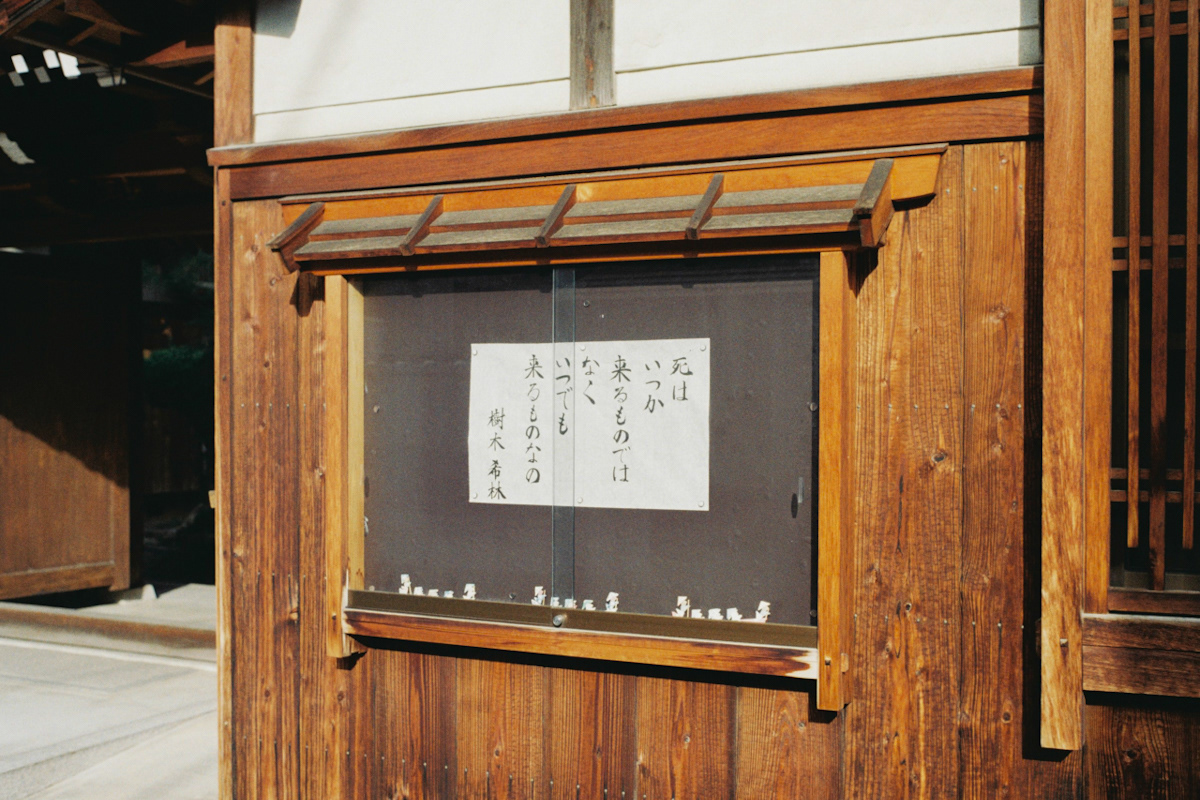 死は
いつか
来るものでは
なく
いつでも
来るものなの
樹木希林